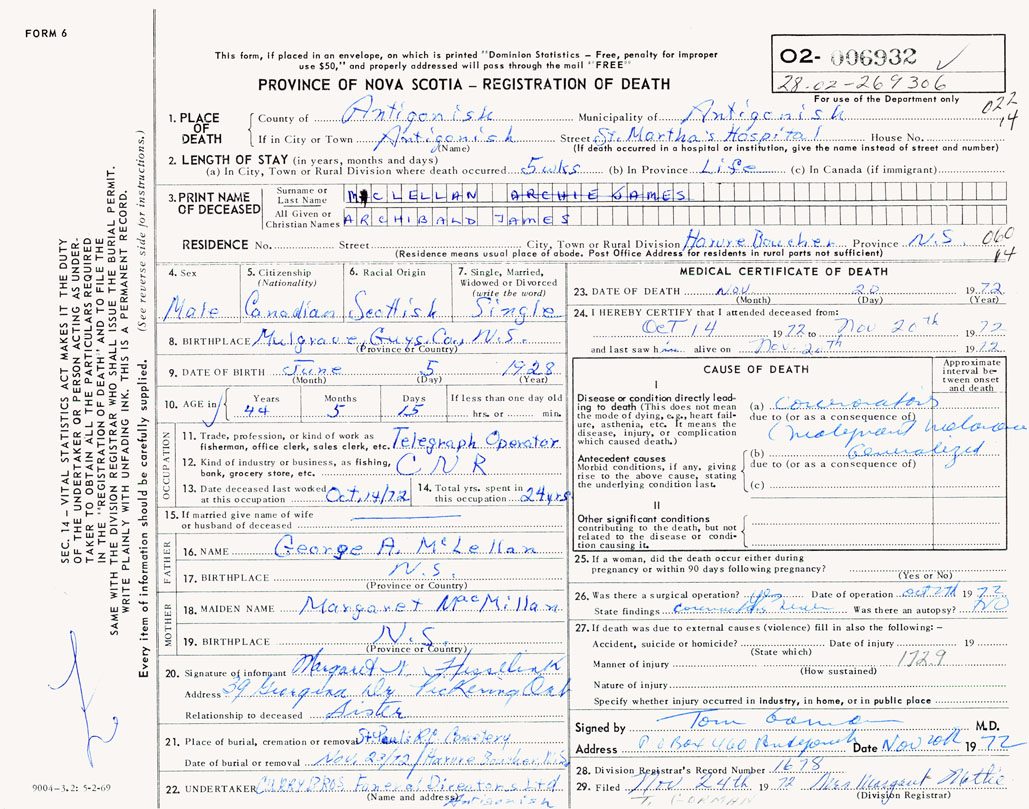 FORM 6
This form, if placed in an envelope, on which is printed "Dominion Statistics – Free, penalty for improper
use $50," and properly addressed will pass through the mail "FREE"
PROVINCE OF NOVA SCOTIA – REGISTRATION OF DEATH
O2- 006932
28.02-269306
For use of the Department only
022
14
1. PLACE OF DEATH
County of Antigonish Municipality of Antigonish
If in City or Town Antigonish Street St. Martha's Hospital House No.
(Name) (If death occurred in a hospital or institution, give the name instead of street and number)
2. LENGTH OF STAY (in years, months and days)
(a) In City, Town or Rural Division where death occurred 5 wks (b) In Province Life (c) In Canada (if immigrant)
3. PRINT NAME OF DECEASED
Surname or Last Name McLELLAN ARCHIE JAMES
All Given or Christian Names ARCHIBALD JAMES
RESIDENCE No. Street City, Town or Rural Division Havre Boucher Province N.S. 060
14
(Residence means usual place of abode. Post Office Address for residents in rural parts not sufficient)
4. Sex
Male
5. Citizenship
(Nationality)
Canadian
6. Racial Origin
Scottish
7. Single, Married,
Widowed or Divorced
(write the word)
Single
8. BIRTHPLACE Mulgrave, Guys. Co., N.S.
(Province or Country)
9. DATE OF BIRTH June 5 1928
(Month) (Day) (Year)
10. AGE in
Years Months Days If less than one day old
44 5 15 hrs. or min.
OCCUPATION
11. Trade, profession, or kind of work as
fisherman, office clerk, sales clerk, etc. Telegraph Operator
12. Kind of industry or business, as fishing,
bank, grocery store, etc. CNR
13. Date deceased last worked
at this occupation Oct. 14/72
14. Total yrs. spent in
this occupation 24 yrs
15. If married give name of wife
or husband of deceased
FATHER
16. NAME George A. McLellan
17. BIRTHPLACE N.S.
(Province or Country)
MOTHER
18. MAIDEN NAME Margaret MacMillan
19. BIRTHPLACE N.S.
(Province or Country)
20. Signature of informant Margaret
Address 39 Georgina Dr. Pickering Ont
Relationship to deceased Sister
21. Place of burial, cremation or removal St Pauls R.C. Cemetery
Date of burial or removal Nov. 23/72 / Havre Boucher N.S.
22. UNDERTAKER CURRY BROS Funeral Directors Ltd
(Name and address) Antigonish
MEDICAL CERTIFICATE OF DEATH
23. DATE OF DEATH Nov 20 1972
(Month) (Day) (Year)
24. I HEREBY CERTIFY that I attended deceased from:
Oct 14 1972 to Nov 20th 1972
and last saw him alive on Nov. 20th 1972
CAUSE OF DEATH
Approximate
interval be-
tween onset
and death
I
Disease or condition directly lead-
ing to death (This does not
mean the mode of dying, e.g., heart fail-
ure, asthenia, etc. It means the
disease, injury, or complication
which caused death.)
(a)
due to (or as a consequence of)
malignant melanoma
Antecedent causes
Morbid conditions, if any, giving
rise to the above cause, stating
the underlying condition last.
(b) Generalized
due to (or as a consequence of)
(c)
II
Other significant conditions
contributing to the death, but not
related to the disease or condi-
tion causing it.
25. If a woman, did the death occur either during
pregnancy or within 90 days following pregnancy?
(Yes or No)
26. Was there a surgical operation? yes Date of operation Oct 27th 1972
State findings Was there an autopsy? NO
27. If death was due to external causes (violence) fill in also the following: –
Accident, suicide or homicide? Date of injury 19
(State which)
Manner of injury 172.9
(How sustained)
Nature of injury
Specify whether injury occurred in industry, in home, or in public place
Signed by Tom Gorman M.D.
Address P O Box 460 Antigonish Date Nov 20th 1972
28. Division Registrar's Record Number 1678
29. Filed Nov 24th 1972 Mrs Margaret
T. GORMAN (Division Registrar)
SEC. 14 – VITAL STATISTICS ACT MAKES IT THE DUTY
OF THE UNDERTAKER OR PERSON ACTING AS UNDER-
TAKER TO OBTAIN ALL THE PARTICULARS REQUIRED
IN THE "REGISTRATION OF DEATH" AND TO FILE THE
SAME WITH THE DIVISION REGISTRAR WHO SHALL ISSUE THE BURIAL PERMIT.
WRITE PLAINLY WITH UNFADING INK. THIS IS A PERMANENT RECORD.
Every item of information should be carefully supplied. (See reverse side for instructions.)
9004-3.2: 5-2-69